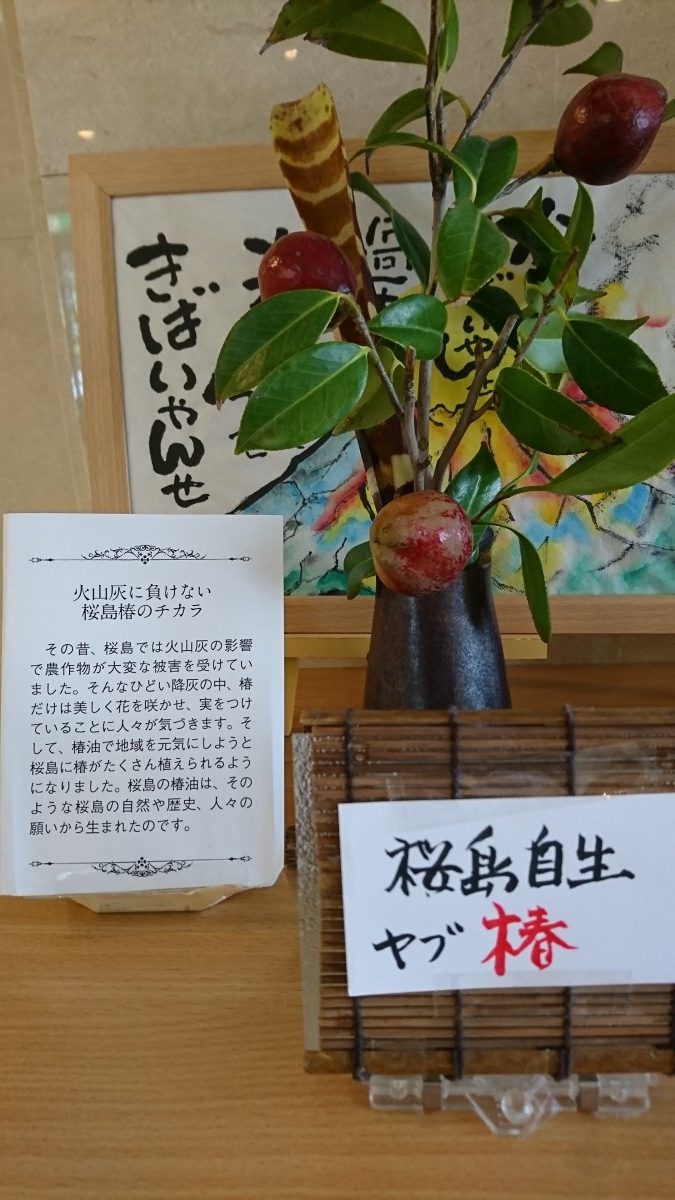 きばいやんせ
火山灰に負けない
桜島椿のチカラ
その昔、桜島では火山灰の影響
で農作物が大変な被害を受けてい
ました。そんなひどい降灰の中、椿
だけは美しく花を咲かせ、実をつけ
ていることに人々が気づきます。そ
して、椿油で地域を元気にしようと
桜島に椿がたくさん植えられるよう
になりました。桜島の椿油は、その
ような桜島の自然や歴史、人々の
願いから生まれたのです。
桜島自生
ヤブ椿